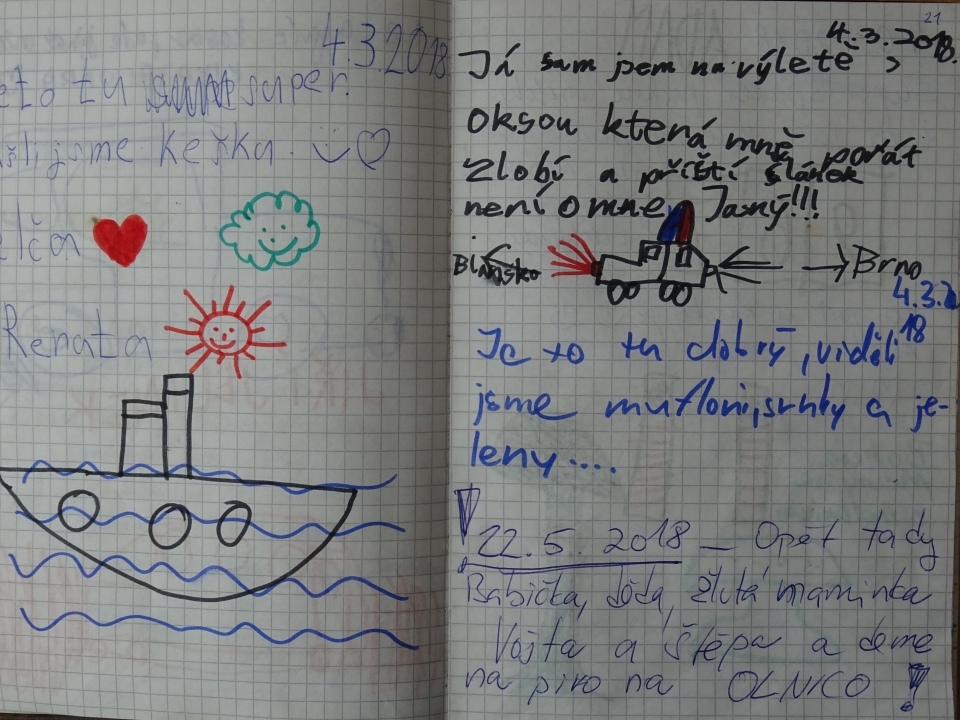 4.3.2018
eto tu super.
šli jsme keška
elča
Renata
21
4.3.2018.
Já sam jsem na výletě s
oksou která mně porát
zlobí a příští šlánek
není o mne Jasný!!!
Blansko Brno
4.3.2018
Je to tu dobrý, viděli
jsme mufloni, srnky a je-
leny....
22.5.2018 - Opět tady
Babička, děda, žlutá maminka
Vojta a Štěpa a deme
na pivo na OLNICO!